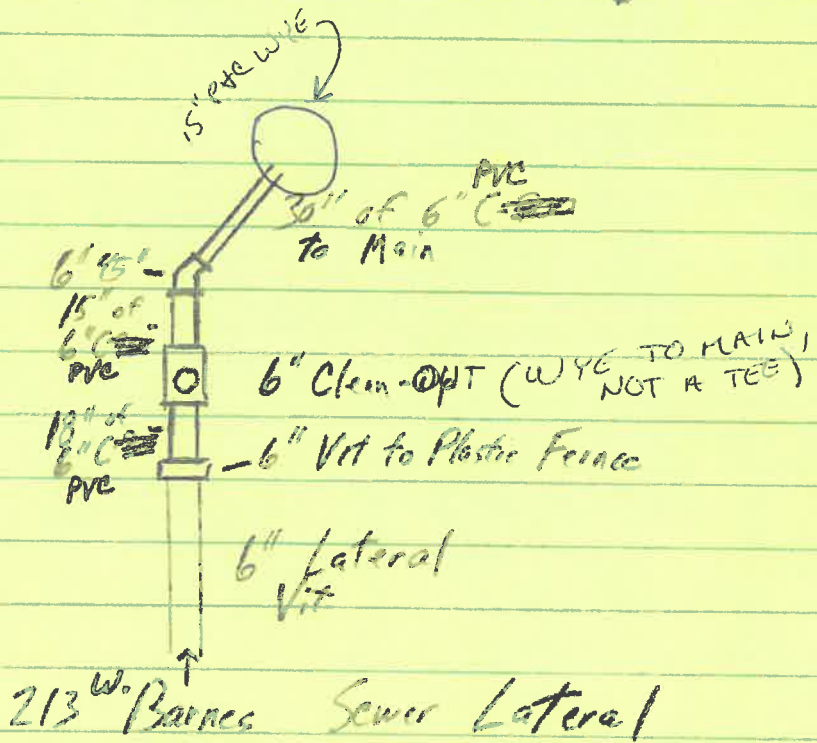 15" PVC WYE
PVC
30" of 6"
to Main
6" 45°
15" of
6"
PVC
6" Clean-OuT (WYE TO MAIN,
NOT A TEE)
18" of
6"
PVC
6" Vit to Plastic
6" Lateral
Vit.
213 W. Barnes Sewer Lateral